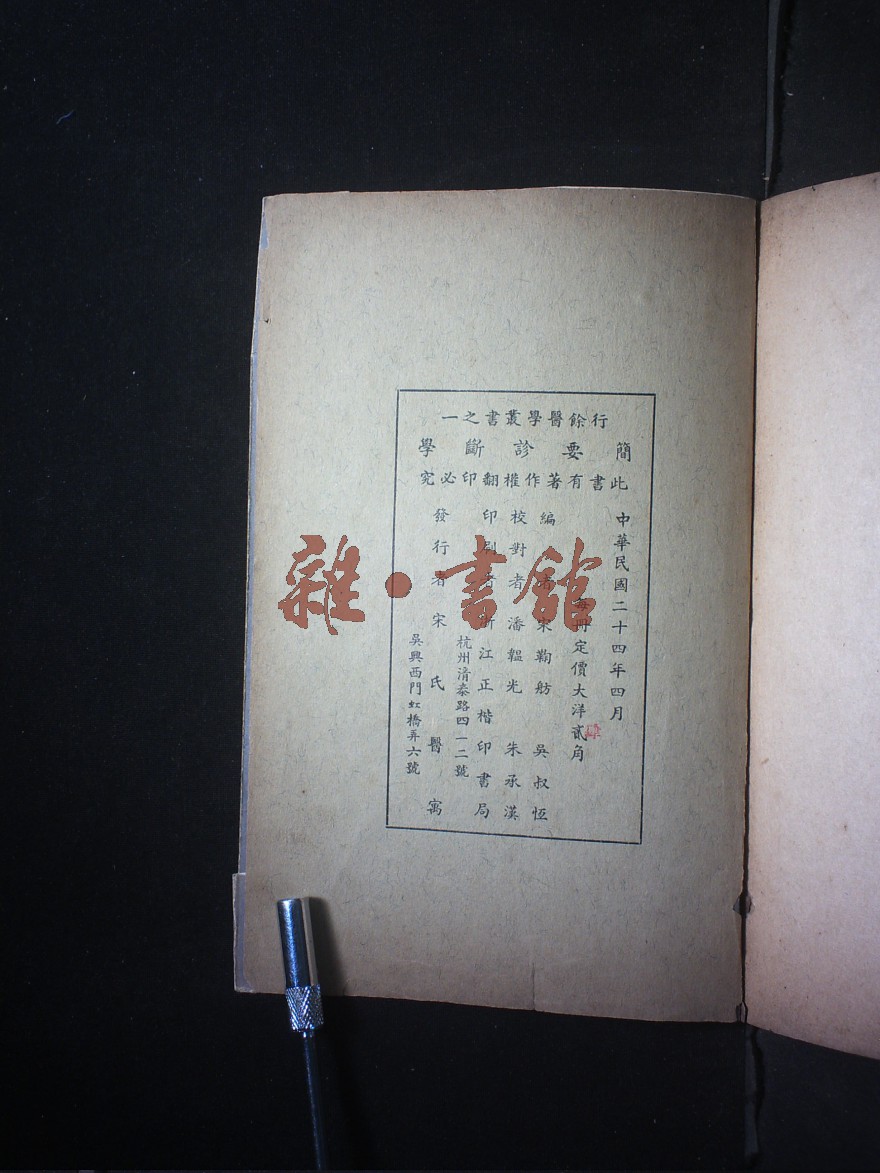 行餘醫學叢書之一
簡要診斷學
此書有著作權翻印必究
中華民國二十四年四月
每冊定價大洋貳角
肆
編者宋鞠舫 吳叔恆
校對者潘韞光 朱承漢
印刷者浙江正楷印書局
杭州清泰路四一二號
發行者宋氏醫寓
吳興西門虹橋弄六號
雜·書館